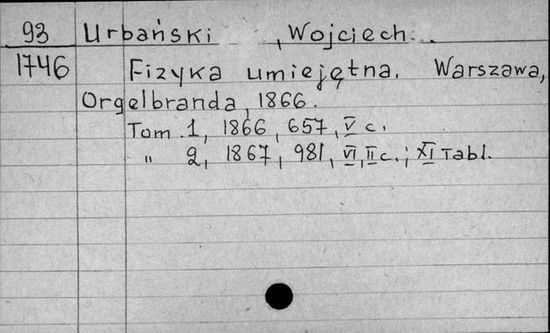 93 Urbański, Wojciech.
1746 Fizyka umiejętna. Warszawa,
Orgelbranda, 1866.
Tom 1, 1866, 657, V c.
" 2, 1867, 981, VI, II c.; XI Tabl.